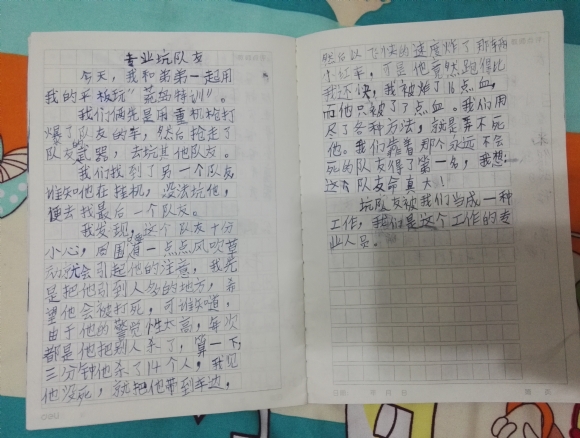 专业坑队友
今天，我和弟弟一起用
我的平板玩“荒岛特训”。
我们俩先是用重机枪打
爆了队友的车，然后抢走了
队友的武器，去坑其他队友。
我们找到了另一个队友，
谁知他在挂机，没法坑他，
便去找最后一个队友。
我发现，这个队友十分
小心，周围有一点点风吹草
动就会引起他的注意，我先
是把他引到人多的地方，希
望他会被打死，可谁知道，
由于他的警觉性太高，每次
都是他把别人杀了，算一下，
三分钟他杀了14个人，我见
他没死，就把他带到车边，
然后以飞快的速度炸了那辆
小红车，可是他竟然跑得比
我还快，我被炸了16点血，
而他只被了7点血。我们用
尽了各种方法，就是弄不死
他。我们靠着那个永远不会
死的队友得了第一名，我想：
这个队友命真大！
坑队友被我们当成一种
工作，我们是这个工作的专
业人员。